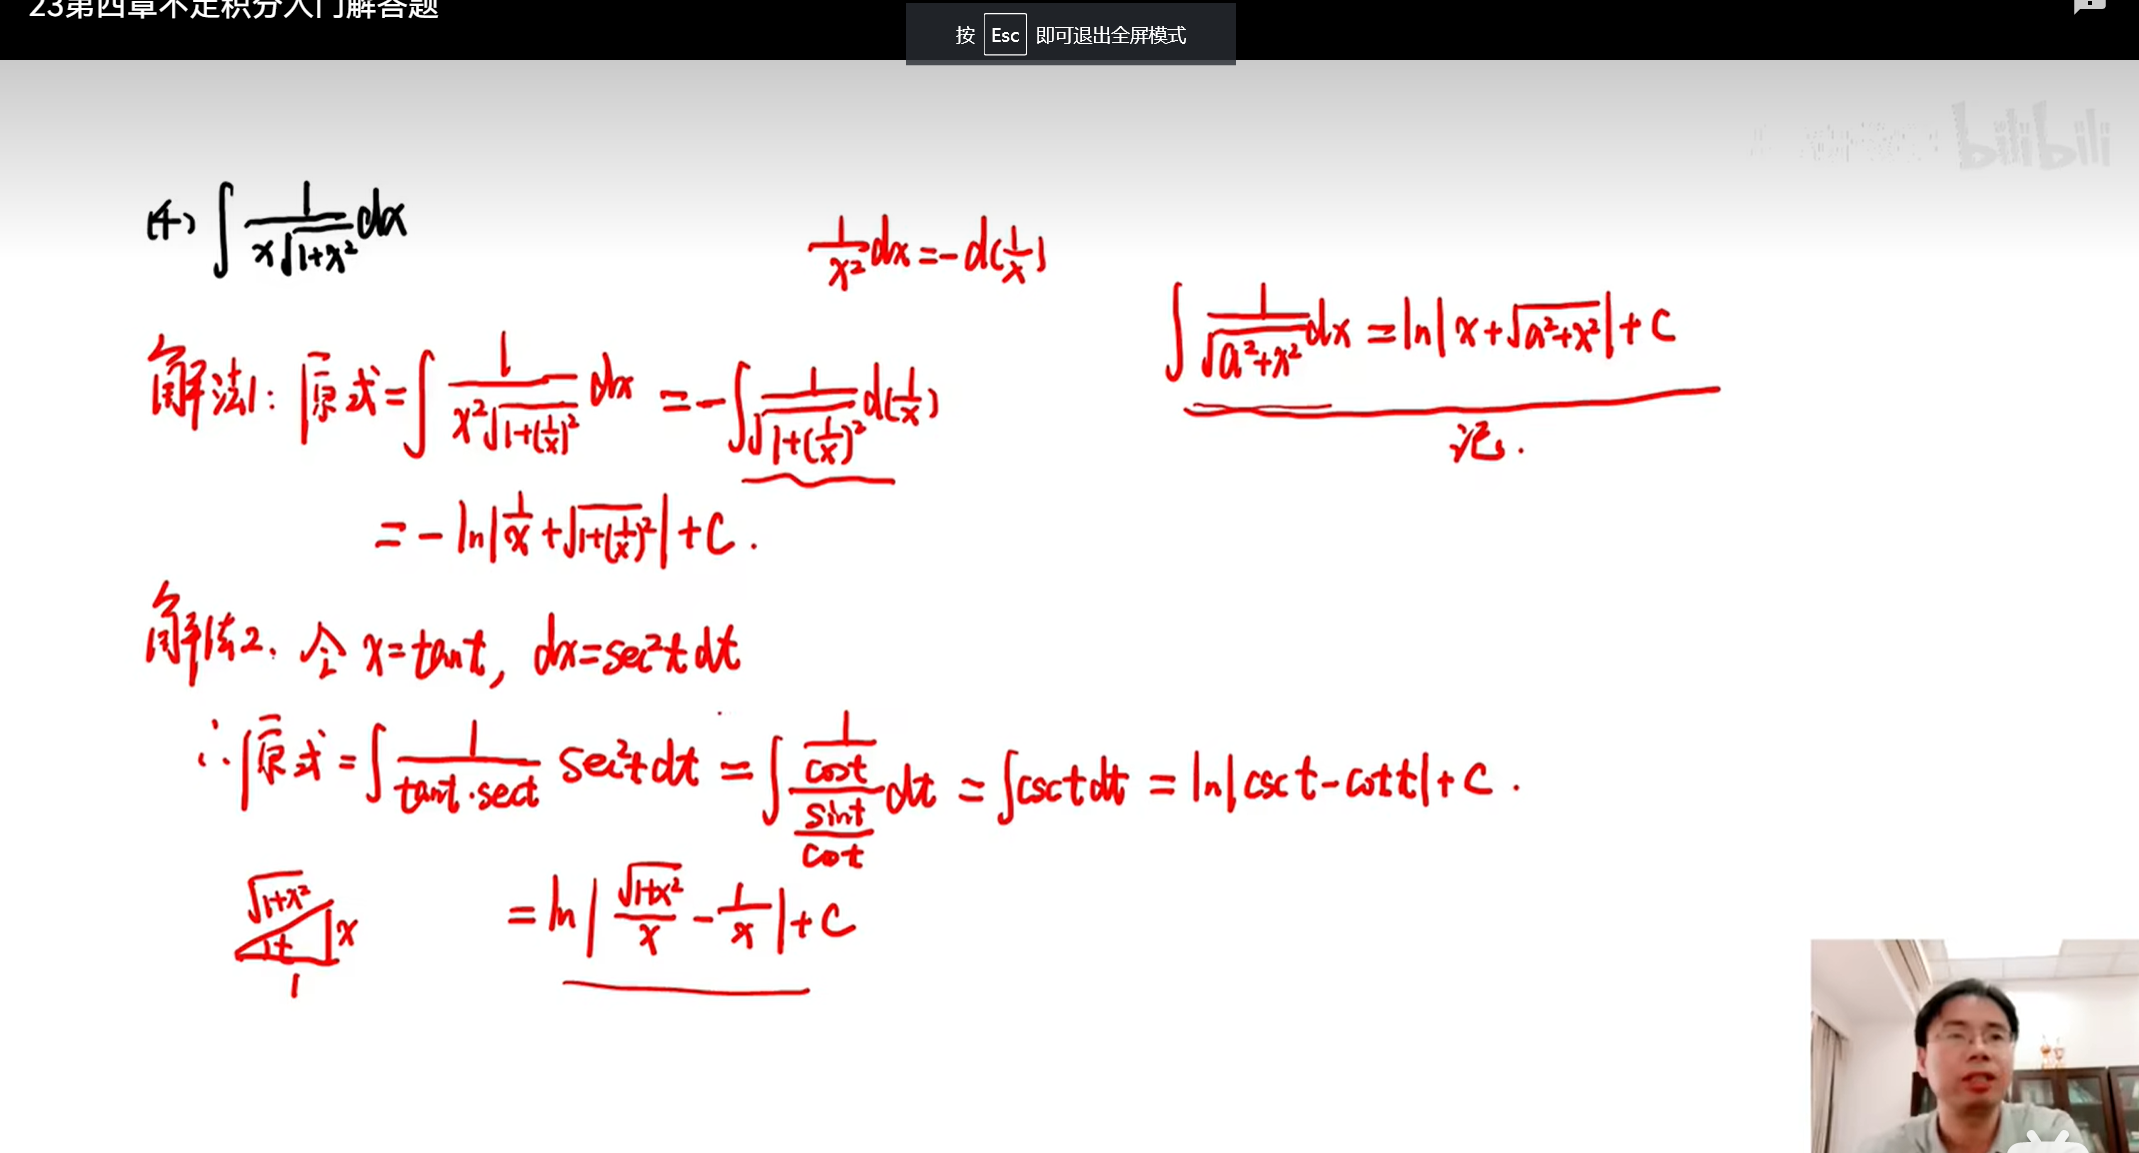 23第四章不定积分入门解答题
按 Esc 即可退出全屏模式
bilibili
(4) ∫ 1/(x√(1+x²)) dx
1/x² dx = -d(1/x)
∫ 1/√(a²+x²) dx = ln|x+√(a²+x²)|+C
记.
解法1: 原式 = ∫ 1/(x²√(1+(1/x)²)) dx = -∫ 1/√(1+(1/x)²) d(1/x)
= -ln|1/x+√(1+(1/x)²)|+C.
解法2. 令 x=tant, dx=sec²t dt
∴ 原式 = ∫ 1/(tant·sect) sec²t dt = ∫ (1/cost)/(sint/cost) dt = ∫csct dt = ln|csct-cott|+C.
√(1+x²)
t
x
1
= ln|√(1+x²)/x - 1/x|+C